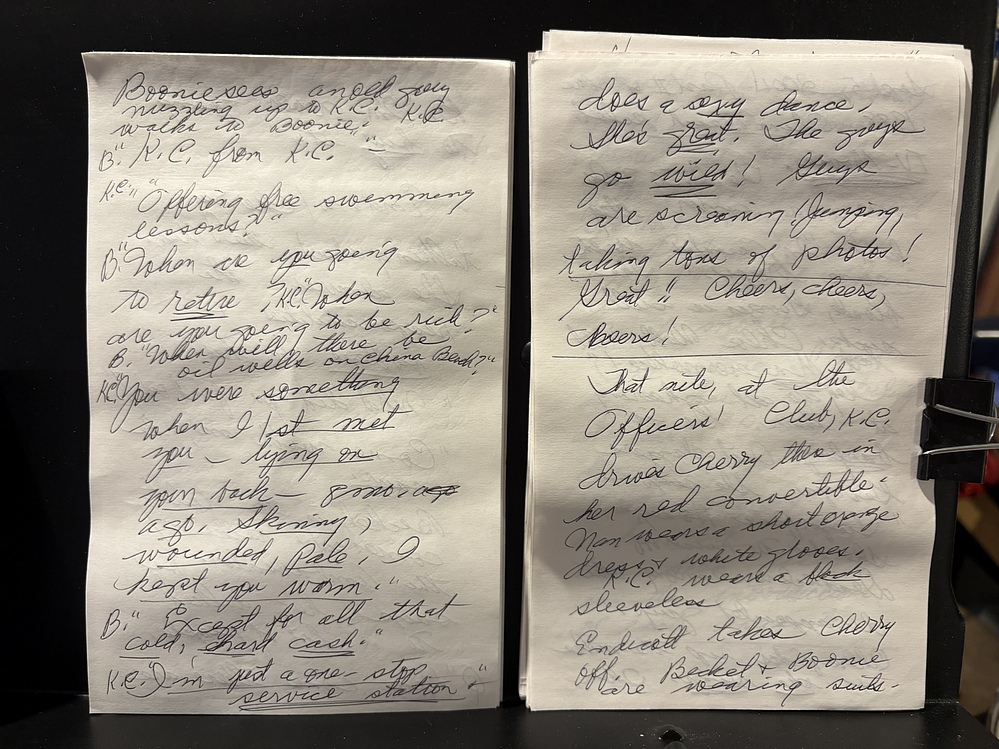 Boonie sees an old guy
nuzzling up to K.C. K.C.
walks to Boonie.
B." K.C. from K.C. "
K.C. "Offering free swimming
lessons?"
B." When are you going
to retire?" K.C. "When
are you going to be rich?"
B. "When will there be
oil wells on China Beach?"
K.C. "You were something
when I 1st met
you - lying on
your back - 8 mo. ago
ago. Skinny,
wounded, pale, I
kept you warm."
B." Except for all that
cold, hard cash."
K.C. "I'm just a one-stop
service station."
does a sexy dance.
She's great. The guys
go wild! Guys
are screaming, jumping,
taking tons of photos!
Great!! Cheers, cheers,
cheers!
That nite, at the
Officers' Club, K.C.
drives Cherry there in
her red convertible.
Nan wears a short orange
dress & white gloves.
K.C. wears a black
sleeveless
Endicott takes Cherry
off. Becket & Boonie
are wearing suits.